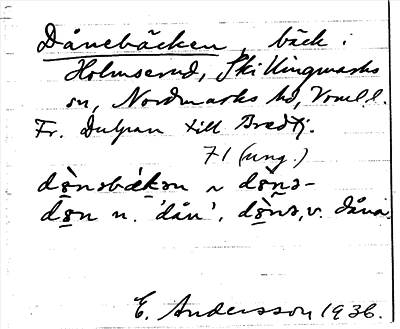 Dånebäcken, bäck i
Holmserud, Skillingmarks
sn, Nordmarks hd, Vrml.l.
Fr. till Bredtj.
71 (ung.)
dǫ̀nəbǽkən ~ dǫ̀nə-
dǫn n. 'dån', dǫ̀nə, v. dåna.
E. Andersson 1936.